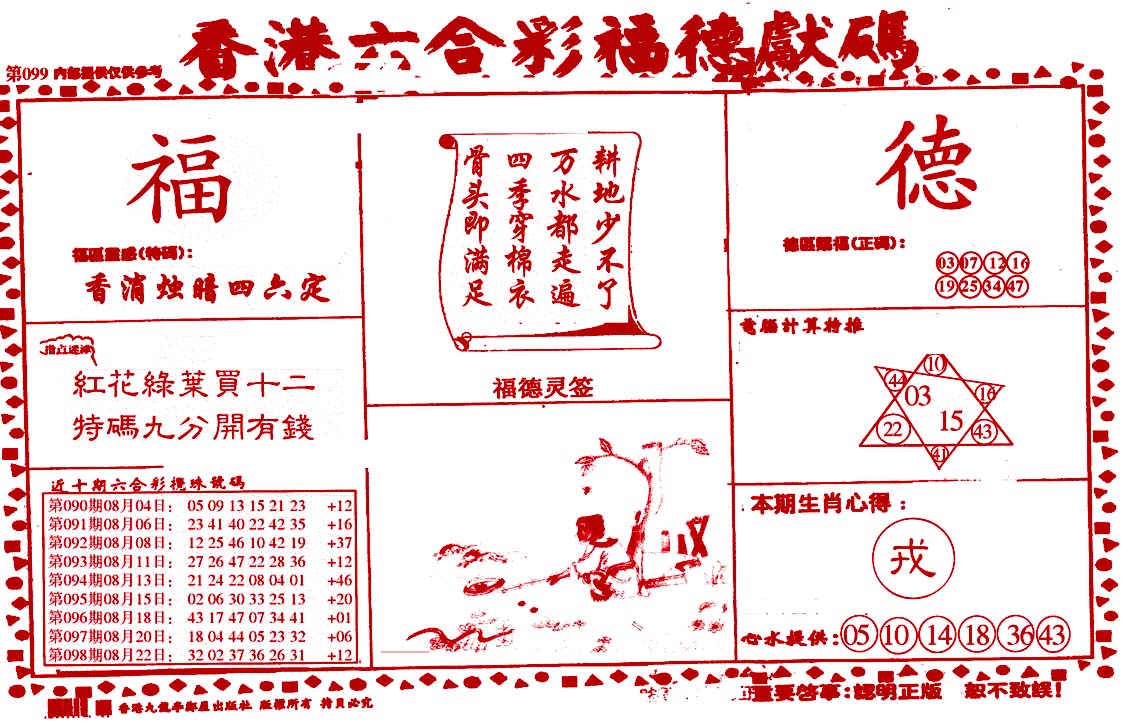 香港六合彩福德獻碼
第099 內部提供仅供參考
福
福區靈感(特碼):
香消烛暗四六定
指点迷津
紅花綠葉買十二
特碼九分開有錢
近十期六合彩攪珠號碼
第090期08月04日: 05 09 13 15 21 23 +12
第091期08月06日: 23 41 40 22 42 35 +16
第092期08月08日: 12 25 46 10 42 19 +37
第093期08月11日: 27 26 47 22 28 36 +12
第094期08月13日: 21 24 22 08 04 01 +46
第095期08月15日: 02 06 30 33 25 13 +20
第096期08月18日: 43 17 47 07 34 41 +01
第097期08月20日: 18 04 44 05 23 32 +06
第098期08月22日: 32 02 37 36 26 31 +12
耕地少不了
万水都走遍
四季穿棉衣
骨头即满足
福德灵签
德
德區賜福(正碼):
03 07 12 16
19 25 34 47
電腦計算特推
10
44 03 16
22 15 43
41
本期生肖心得:
戎
心水提供: 05 10 14 18 36 43
重要啓事:認明正版 恕不致誤!
出版社 版權所有 必究